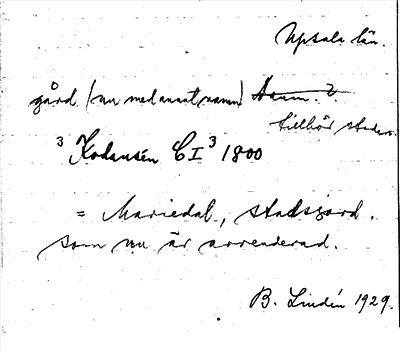 Upsala län.
gård (nu med annat namn) Namn. ?
tillhör staden.
³ Kodansén CI³ 1800
= Mariedal, stadsgård.
som nu är arrenderad.
B. Lindén 1929.